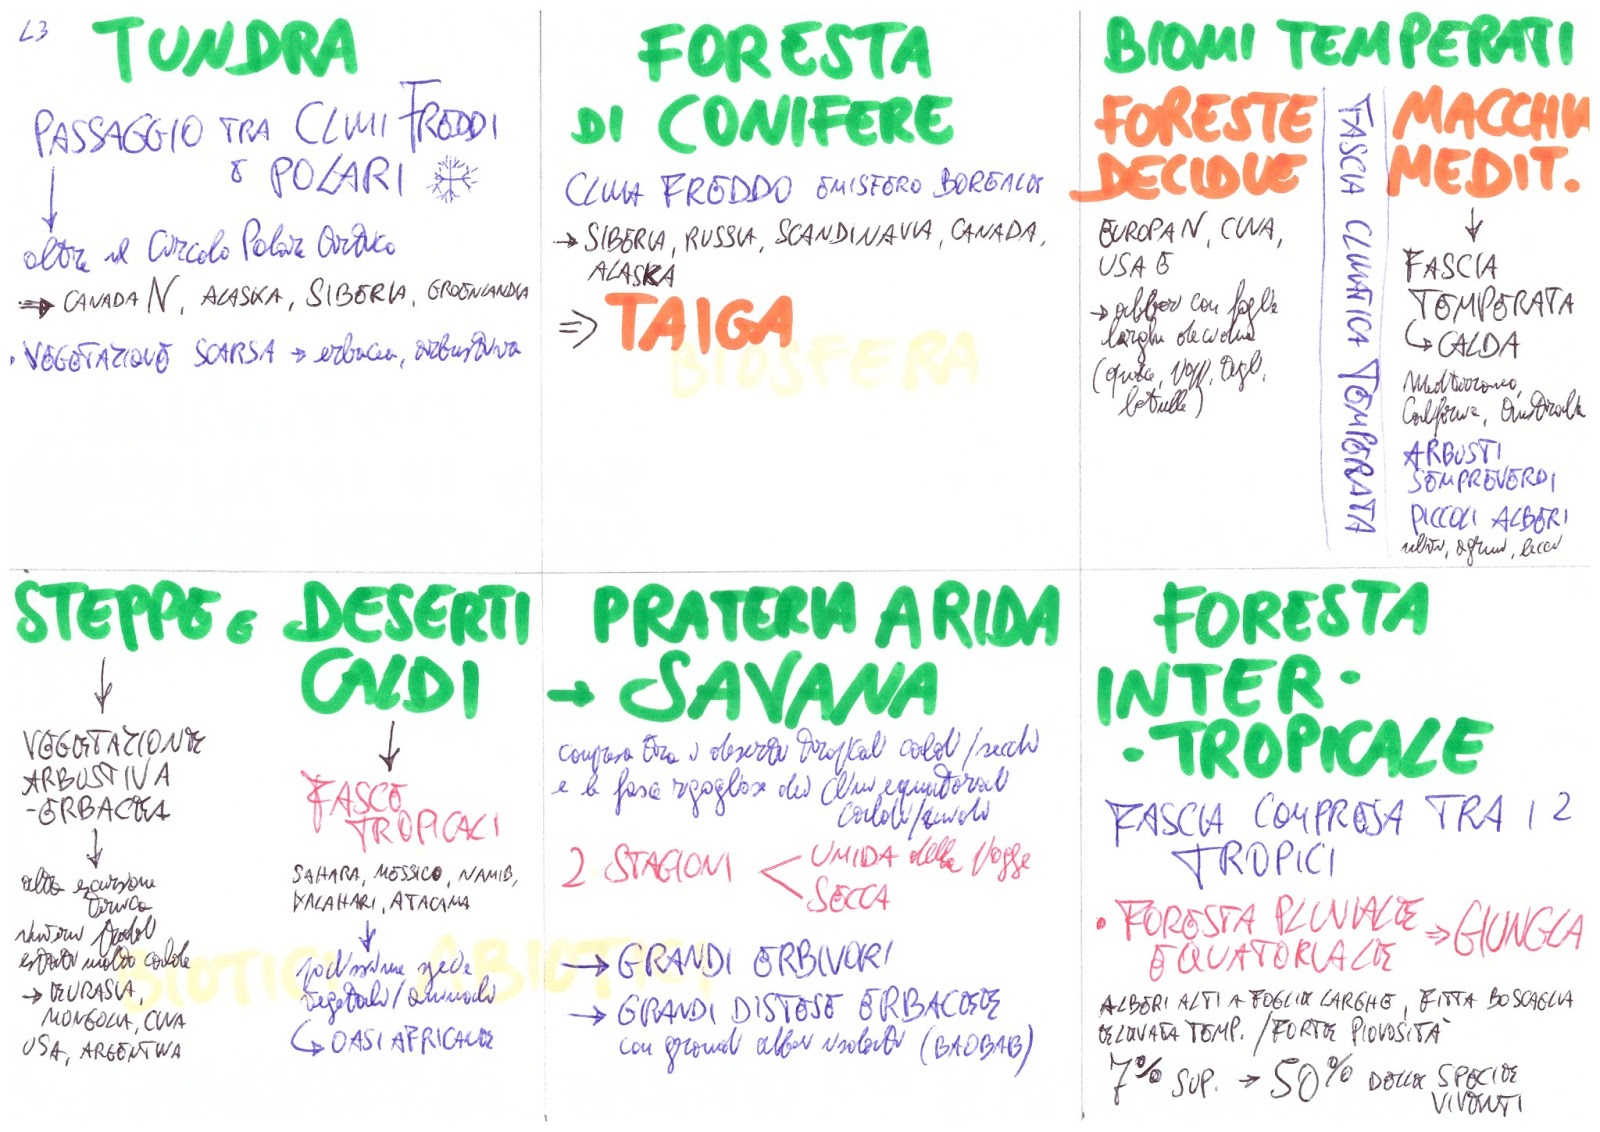 L3
TUNDRA
PASSAGGIO TRA CLIMI FREDDI
E POLARI
oltre il Circolo Polare Artico
⇒ CANADA N, ALASKA, SIBERIA, GROENLANDIA
• VEGETAZIONE SCARSA → erbacea, arbustiva
FORESTA
DI CONIFERE
CLIMA FREDDO EMISFERO BOREALE
→ SIBERIA, RUSSIA, SCANDINAVIA, CANADA,
ALASKA
⇒ TAIGA
BIOSFERA
BIOMI TEMPERATI
FORESTE
DECIDUE
EUROPA N, CINA,
USA E
→ alberi con foglie
larghe decidue
(querce, faggi, tigli,
betulle)
FASCIA CLIMATICA TEMPERATA
MACCHIA
MEDIT.
FASCIA
TEMPERATA
↳ CALDA
Mediterraneo,
California, Australia
ARBUSTI
SEMPREVERDI
PICCOLI ALBERI
ulivi, agrumi, lecci
STEPPE E
VEGETAZIONE
ARBUSTIVA
-ERBACEA
alta escursione
termica
inverni freddi
estati molto calde
→ EURASIA,
MONGOLIA, CINA
USA, ARGENTINA
DESERTI
CALDI
FASCE
TROPICALI
SAHARA, MESSICO, NAMIB,
KALAHARI, ATACAMA
pochissime specie
vegetali/animali
↳ OASI AFRICANE
BIOTICI ABIOTICI
PRATERIA ARIDA
→ SAVANA
compresa tra i deserti tropicali caldi/secchi
e la fascia rigogliosa dei climi equatoriali
caldi/umidi
2 STAGIONI < UMIDA delle Piogge
SECCA
→ GRANDI ERBIVORI
→ GRANDI DISTESE ERBACEE
con grandi alberi isolati (BAOBAB)
FORESTA
INTER-
-TROPICALE
FASCIA COMPRESA TRA I 2
TROPICI
• FORESTA PLUVIALE ⇒ GIUNGLA
EQUATORIALE
ALBERI ALTI A FOGLIE LARGHE, FITTA BOSCAGLIA
ELEVATA TEMP. / FORTE PIOVOSITÀ
7% SUP. → 50% DELLE SPECIE
VIVENTI